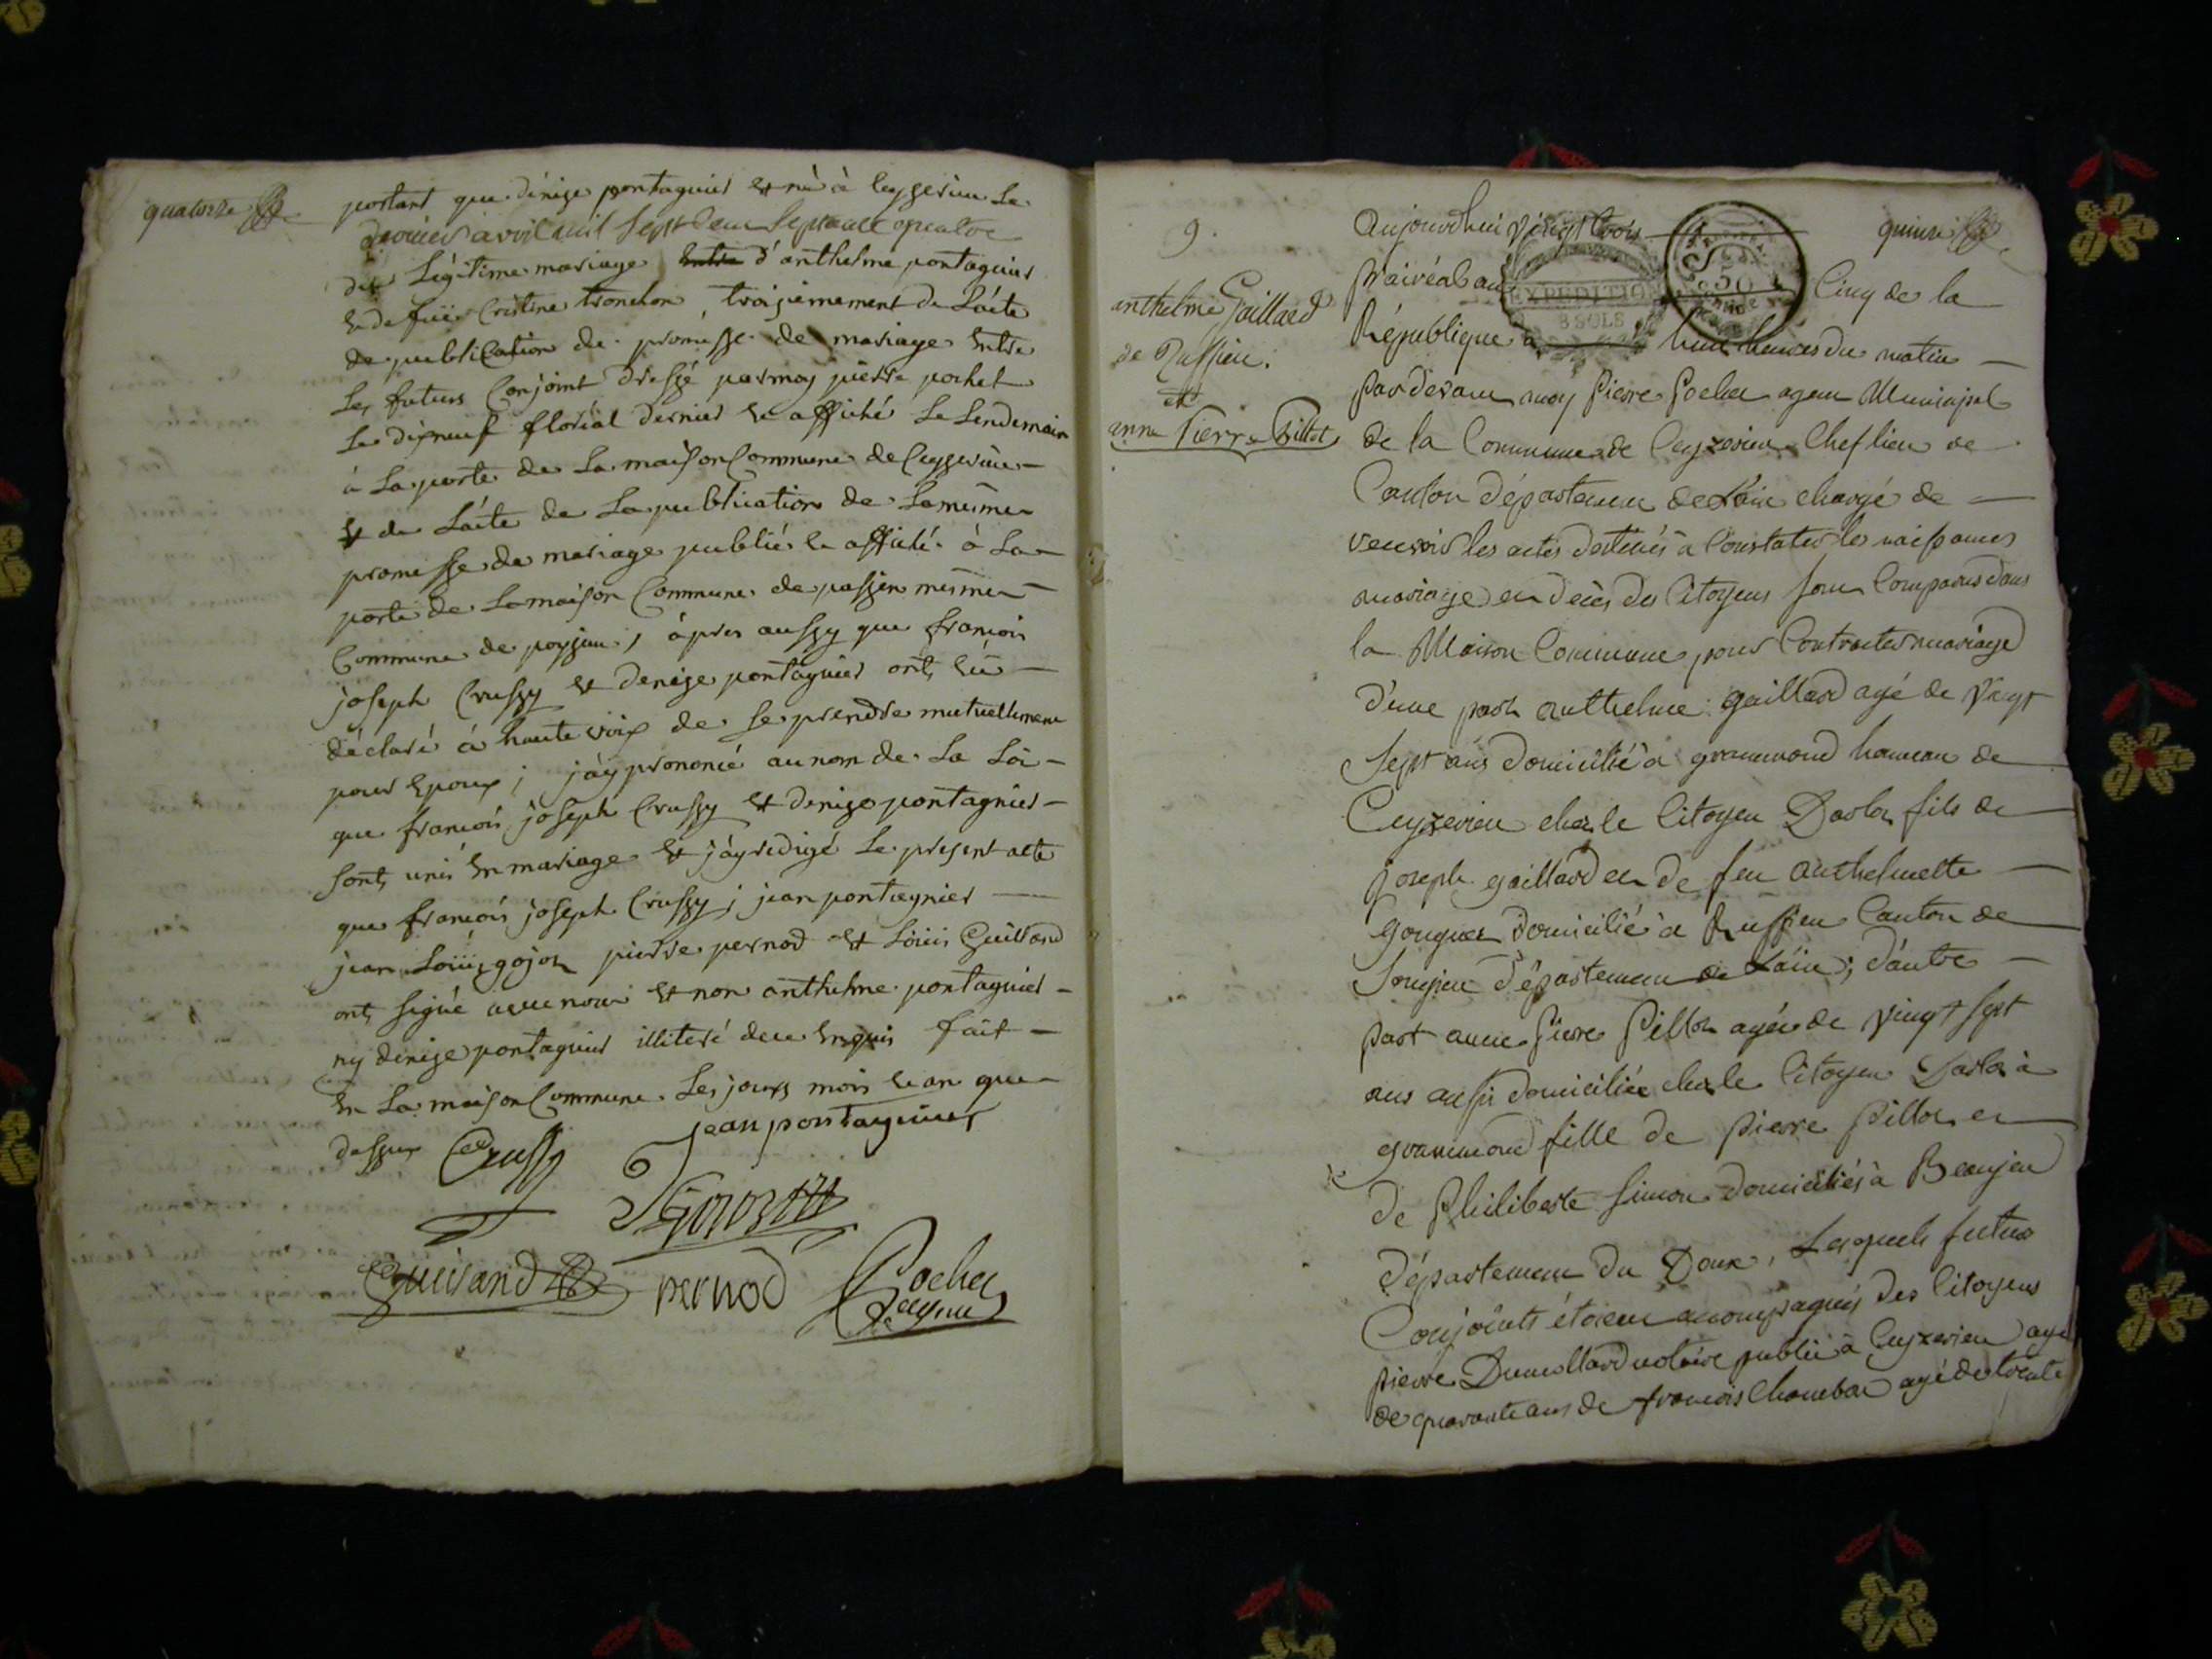 quatorze
portant que dénise pontagnier est né à ceyzerieu le
dernier avril mil sept cent septante quatre
du légitime mariage entre d'anthelme pontagnier
et de feüe Cristine tronchon, troisiemement de l'acte
de publication de promesse de mariage entre
les futurs Conjoint dressé par moy pierre pochet
le dixneuf floréal dernier et affiché le lendemain
à la porte de la maison Commune de Ceyzerieu
et de l'acte de la publication de la même
promesse de mariage publié et affiché à la
porte de la maison Commune de
Commune de, après aussy que françois
joseph Crussy et denize pontagnier ont eû
déclaré à haute voix de se prendre mutuellement
pour epoux; j'ay prononcé au nom de la loi
que françois joseph Crussy et denize pontagnier
sont unis en mariage et j'ay redigé le present acte
que françois joseph Crussy; jean pontagnier
jean loüis gojoz pierre pernod et loüis Guilland
ont signé avec nous et non anthelme pontagnier
ny denize pontagnier illiteré de ce enquis fait
en la maison Commune les jours mois et an que
dessus Crussy
jean pontagnier
pernod Pochet
agent
9.
quinze
anthelme Gaillard
de Ruffieu.
et
anne Pierre Pillot
Aujourdhui vingt trois
Prairéal an Cinq de la
EXPEDITION
3 SOLS
50
République à huit heures du matin
pardevant moy Pierre Pochet agent Municipal
de la Commune de Ceyzerieu Chef lieu de
Canton département de Lain chargé de
recevoir les actes destinés à Constater les naissances
mariage et deces des Citoyens sont Comparus dans
la Maison Commune pour Contracter mariage
d'une part anthelme gaillard agé de vingt
sept ans domicilié à grammond hameau de
Ceyzerieu chez le Citoyen Darloz fils de
joseph gaillard et de feu anthelmette
domicilié à Ruffieu Canton de
Songieu département de Lain; d'autre
part anne Pierre Pillot agée de vingt sept
ans aussi domiciliée chez le Citoyen Darloz à
grammond fille de Pierre Pillot et
de Philiberte Simon domiciliés à Beaujeu
département du Doux, Lesquels futurs
Conjoints étoient accompagnés des Citoyens
pierre Dumollard notaire public à Ceyzerieu agé
de quarante ans de françois agé de trente